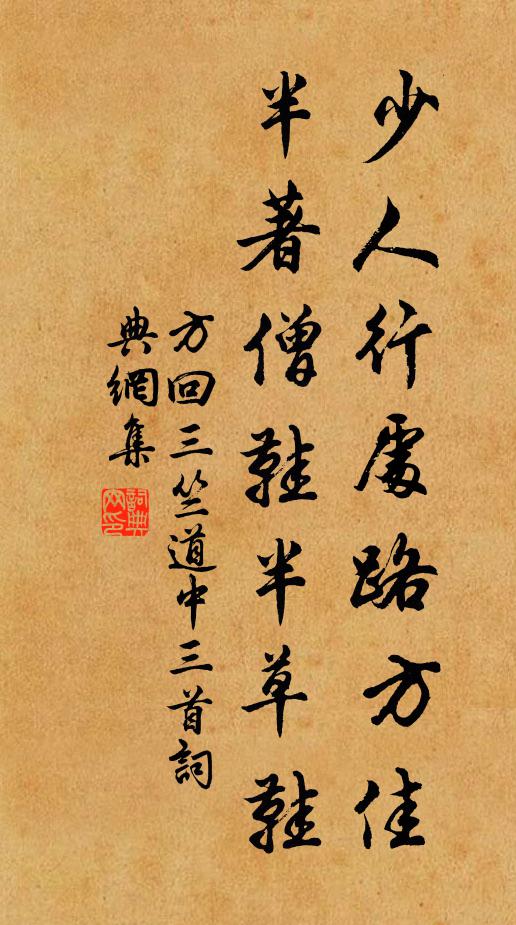 少人行處路方佳
半著僧鞋半草鞋
方回三竺道中三首詞
典網集
詞典網印